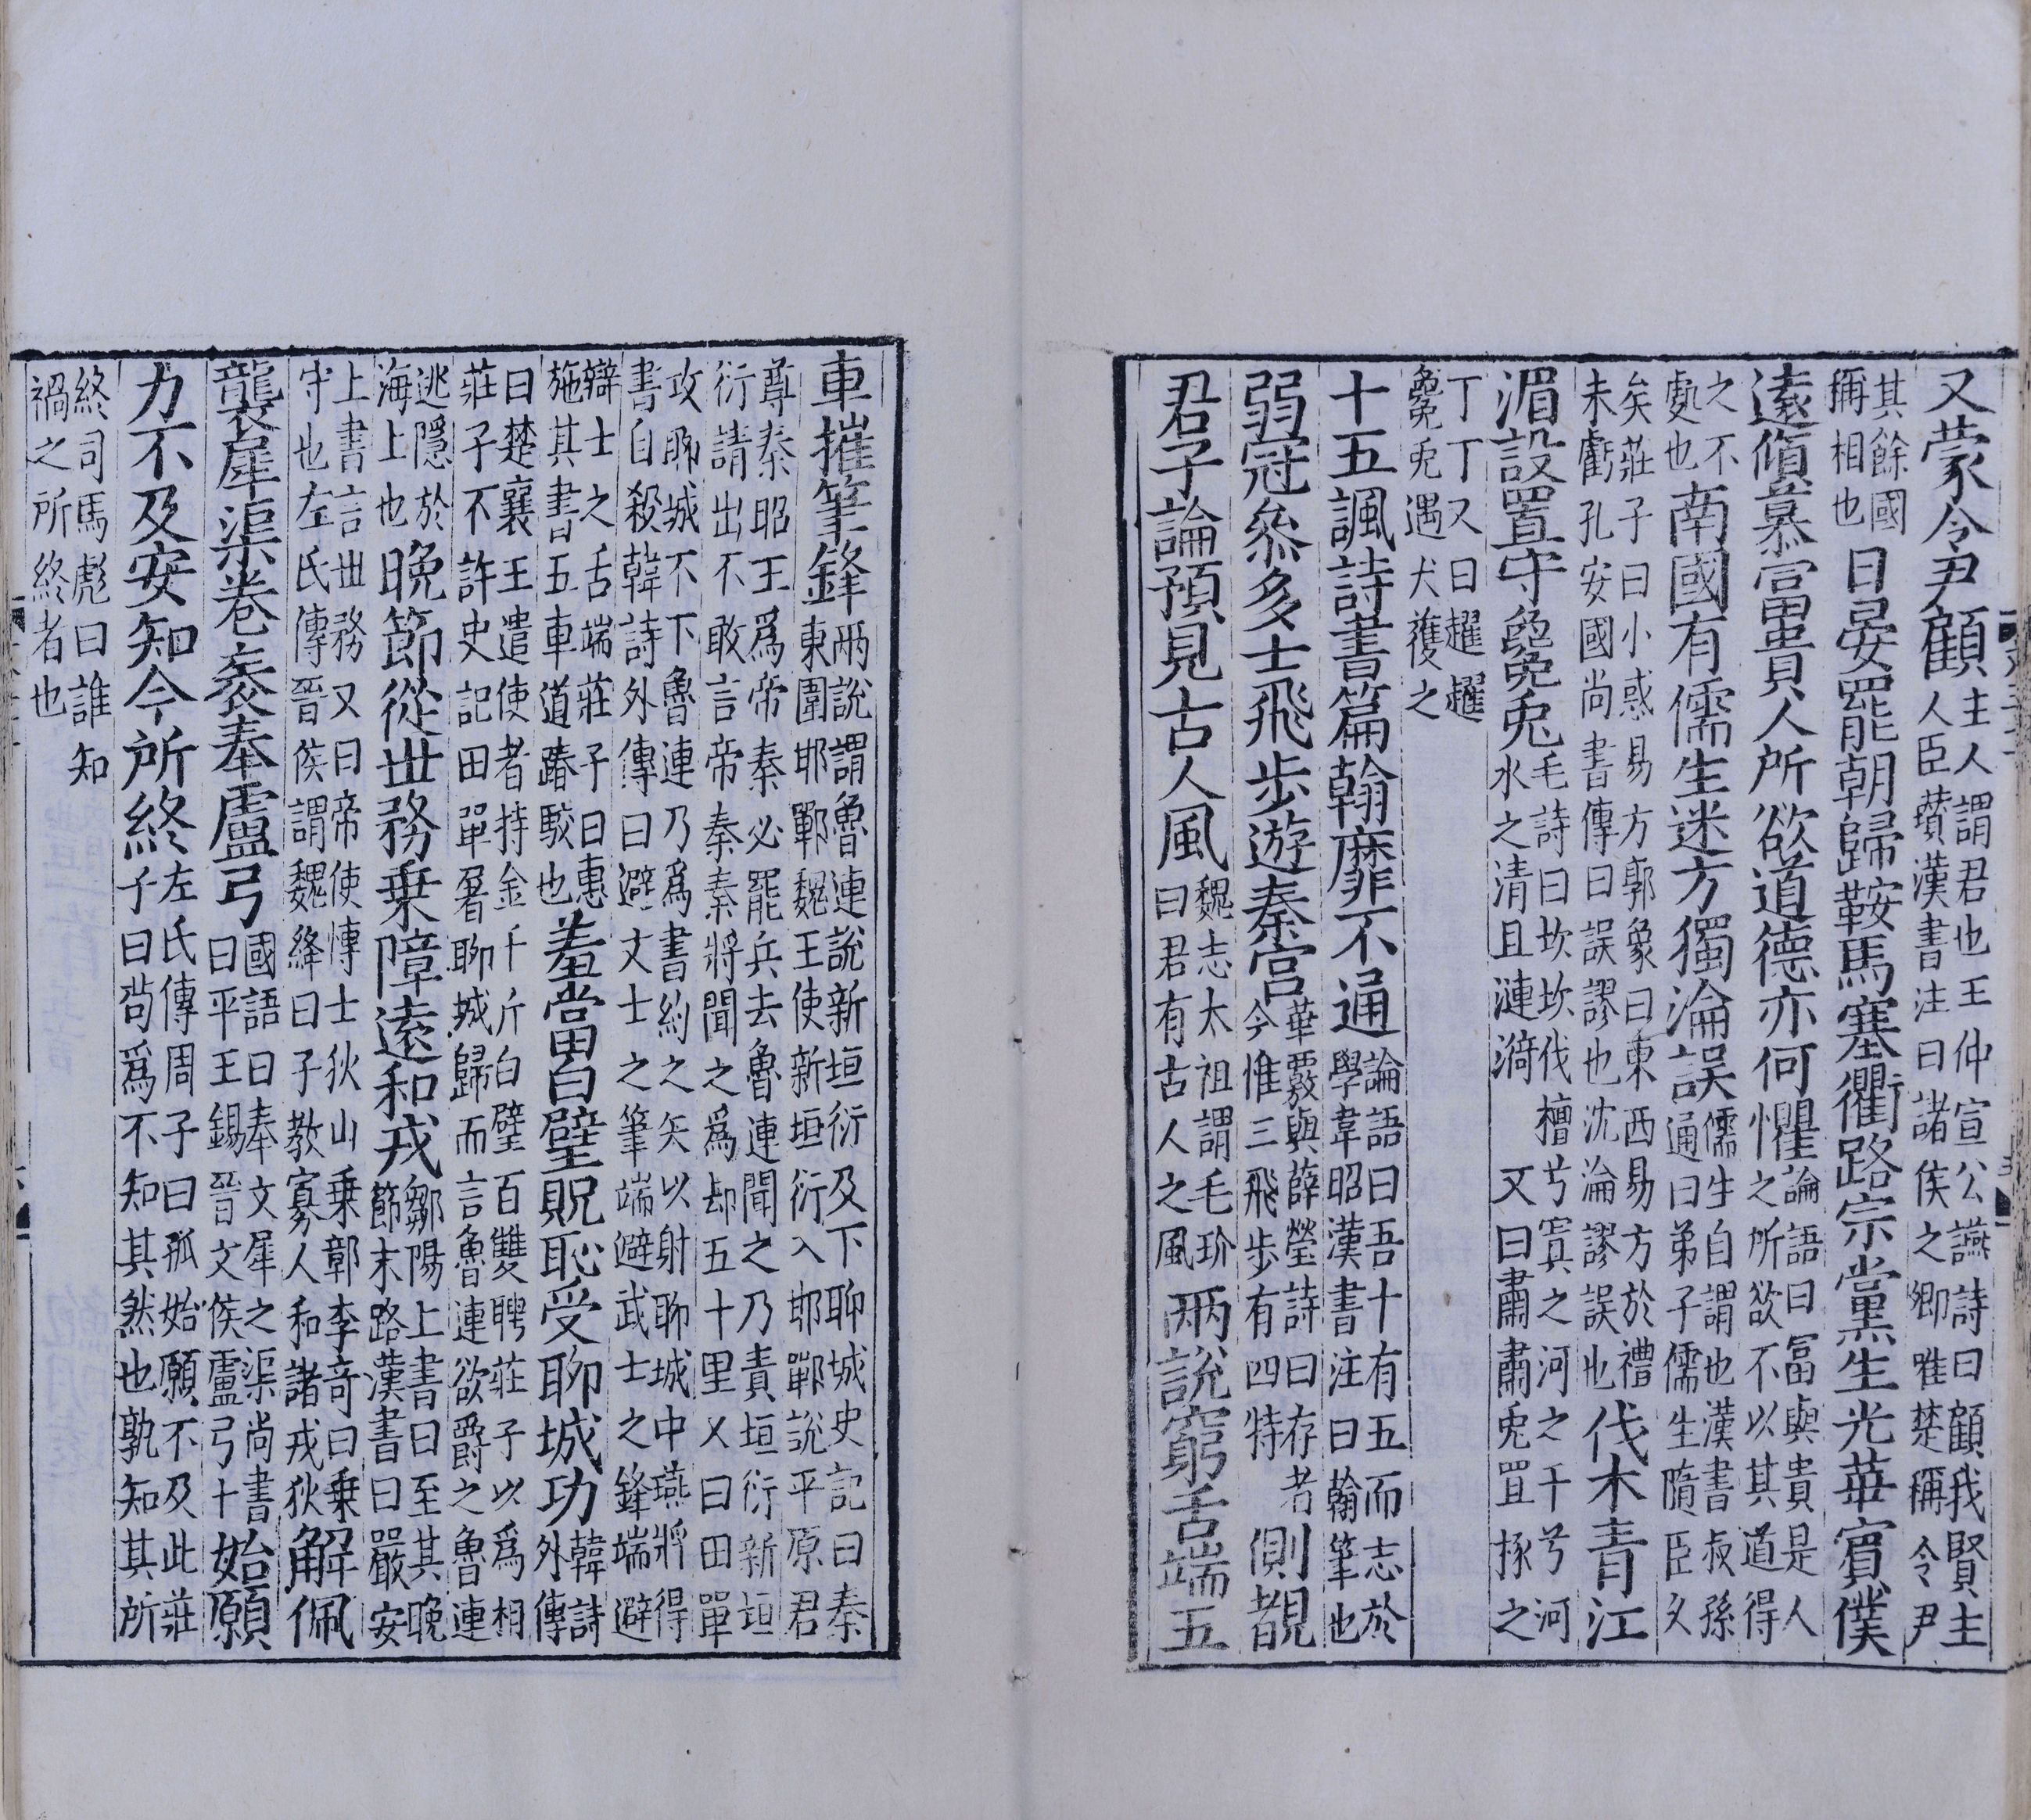 又蒙令尹顧主人謂君也王仲宣公讌詩曰顧我賢主人臣瓚漢書注曰諸侯之卿唯楚稱令尹
其餘國稱相也日晏罷朝歸鞍馬塞衢路宗黨生光華賓僕
遠傾慕富貴人所欲道德亦何懼論語曰冨與貴是人之所欲不以其道得
之不處也南國有儒生迷方獨淪誤儒生自謂也漢書叔孫通曰弟子儒生隨臣久
矣莊子曰小惑易方郭象曰東西易方於禮未虧孔安國尚書傳曰誤謬也沈淪謬誤也伐木青江
湄設罝守毚兔毛詩曰坎坎伐檀兮寘之河之干兮河水之清且漣漪 又曰肅肅兔罝椓之
丁丁又曰趯趯毚兔遇犬獲之
十五諷詩書篇翰靡不通論語曰吾十有五而志於學韋昭漢書注曰翰筆也
弱冠參多士飛步遊秦宮華覈與薛瑩詩曰存者今惟三飛步有四特側覩
君子論預見古人風魏志太祖謂毛玠曰君有古人之風兩說窮舌端五
車摧筆鋒兩說謂魯連說新垣衍及下聊城史記曰秦東圍邯鄲魏王使新垣衍入邯鄲說平原君
尊秦昭王爲帝秦必罷兵去魯連聞之乃責垣衍新垣衍請出不敢言帝秦秦將聞之爲却五十里又曰田單
攻聊城不下魯連乃爲書約之矢以射聊城中燕將得書自殺韓詩外傳曰避文士之筆端避武士之鋒端避
辯士之舌端莊子曰惠施其書五車道踳駮也羞當白璧貺恥受聊城功韓詩外傳
曰楚襄王遣使者持金千斤白璧百雙聘莊子以爲相莊子不許史記田單署聊城歸而言魯連欲爵之魯連
逃隱於海上也晚節從世務乗障遠和戎鄒陽上書曰至其晚節末路漢書曰嚴安
上書言世務又曰帝使博士狄山乗鄣李奇曰乗守也左氏傳晉侯謂魏絳曰子教寡人和諸戎狄解佩
襲犀渠卷袠奉盧弓國語曰奉文犀之渠尚書曰平王錫晉文侯盧弓十始願
力不及安知今所終左氏傳周子曰孤始願不及此莊子曰茍爲不知其然也孰知其所
終司馬彪曰誰知禍之所終者也